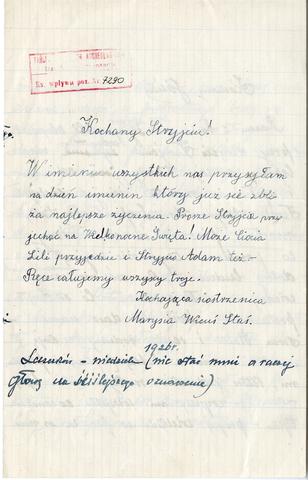 Ks. wpływu poz. Nr. 7290
Kochany Stryjciu!
W imieniu wszystkich nas przysyłam
na dzień imienin który już się zbli
ża najlepsze życzenia. Proszę Stryjcia przy
jechać na Wielkanocne Święta! Może Ciocia
Lilé przyjedzie i Stryjcio Adam też. -
Ręce całujemy wszyscy troje.
Kochająca siostrzenica
Marysia Wicuś Staś.
1926r.
- niedziela (nie stać mnie a raczej
głowę na ściślejsze oznaczenie)